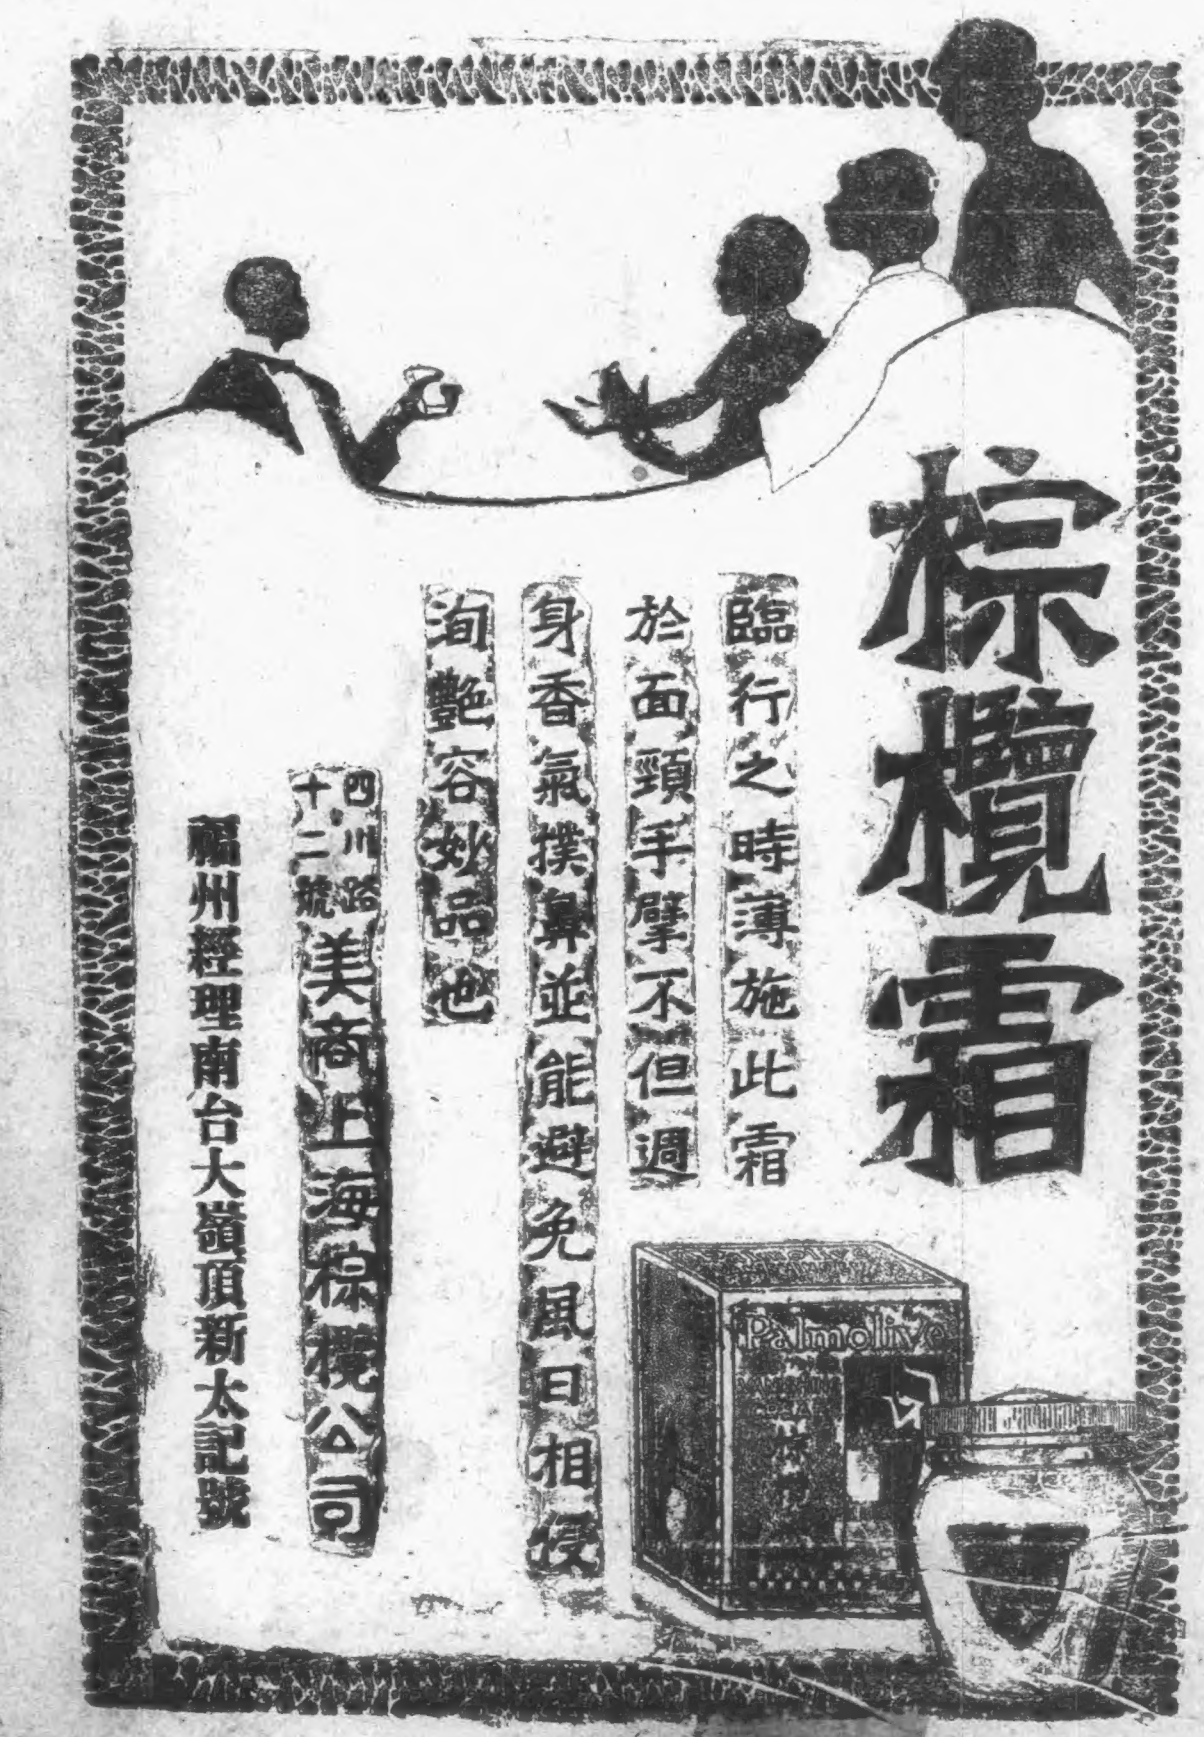 棕欖霜
臨行之時薄施此霜
於面頸手擘不但週
身香氣撲鼻並能避免風日相侵
洵艷容妙品也
四川路
十二號
美商上海棕欖公司
福州經理南台大嶺頂新太記號
Palmolive